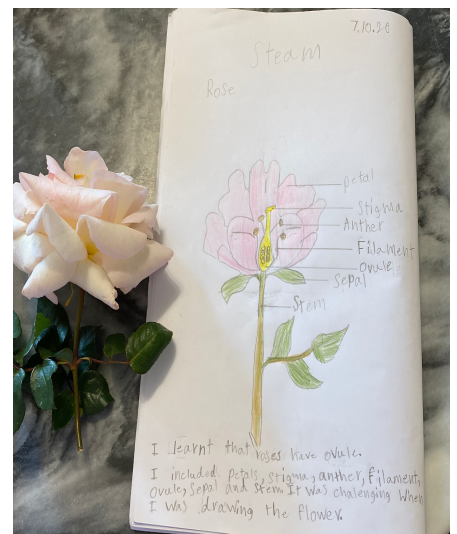 7.10.20
Steam
Rose
petal
Stigma
Anther
Filament
ovule
Sepal
Stem
I learnt that roses have ovule.
I included petals, stigma, anther, filament,
ovule, sepal and stem It was chalenging when
I was drawing the flower.